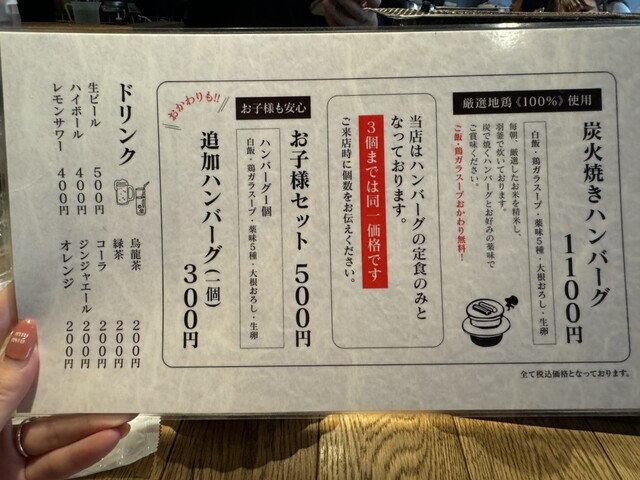 厳選地鶏《100%》使用
炭火焼きハンバーグ
1100円
白飯・鶏ガラスープ・薬味5種・大根おろし・生卵
毎朝、厳選したお米を精米し、
羽釜で炊いております。
炭で焼くハンバーグとお好みの薬味で
ご賞味ください。
ご飯・鶏ガラスープおかわり無料！
当店はハンバーグの定食のみと
なっております。
3個までは同一価格です
ご来店時に個数をお伝えください。
お子様も安心
お子様セット 500円
ハンバーグ1個
白飯・鶏ガラスープ・薬味5種・大根おろし・生卵
おかわりも!!
追加ハンバーグ(一個)
300円
ドリンク
生ビール 500円
ハイボール 400円
レモンサワー 400円
烏龍茶 200円
緑茶 200円
コーラ 200円
ジンジャエール 200円
オレンジ 200円
全て税込価格となっております。